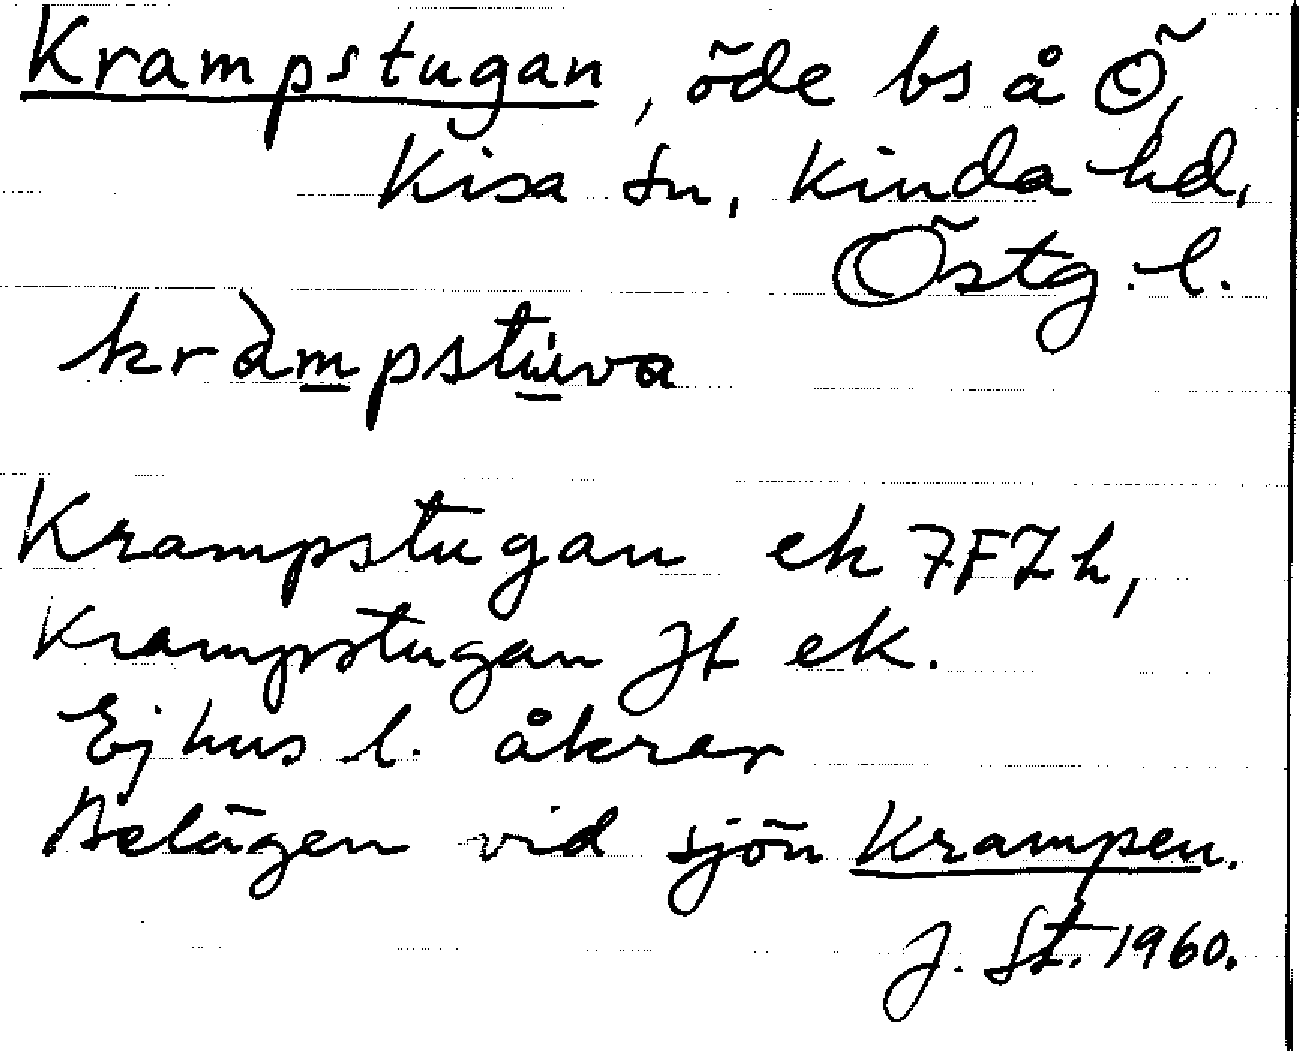 Krampstugan, öde bs å Ö,
Kisa sn, Kinda hd,
Östg. l.
kràmpstu̇va
Krampstugan ek 7F7h,
Krampstugan Jt ek.
Ej hus l. åkrar
Belägen vid sjön Krampen.
J. St. 1960.